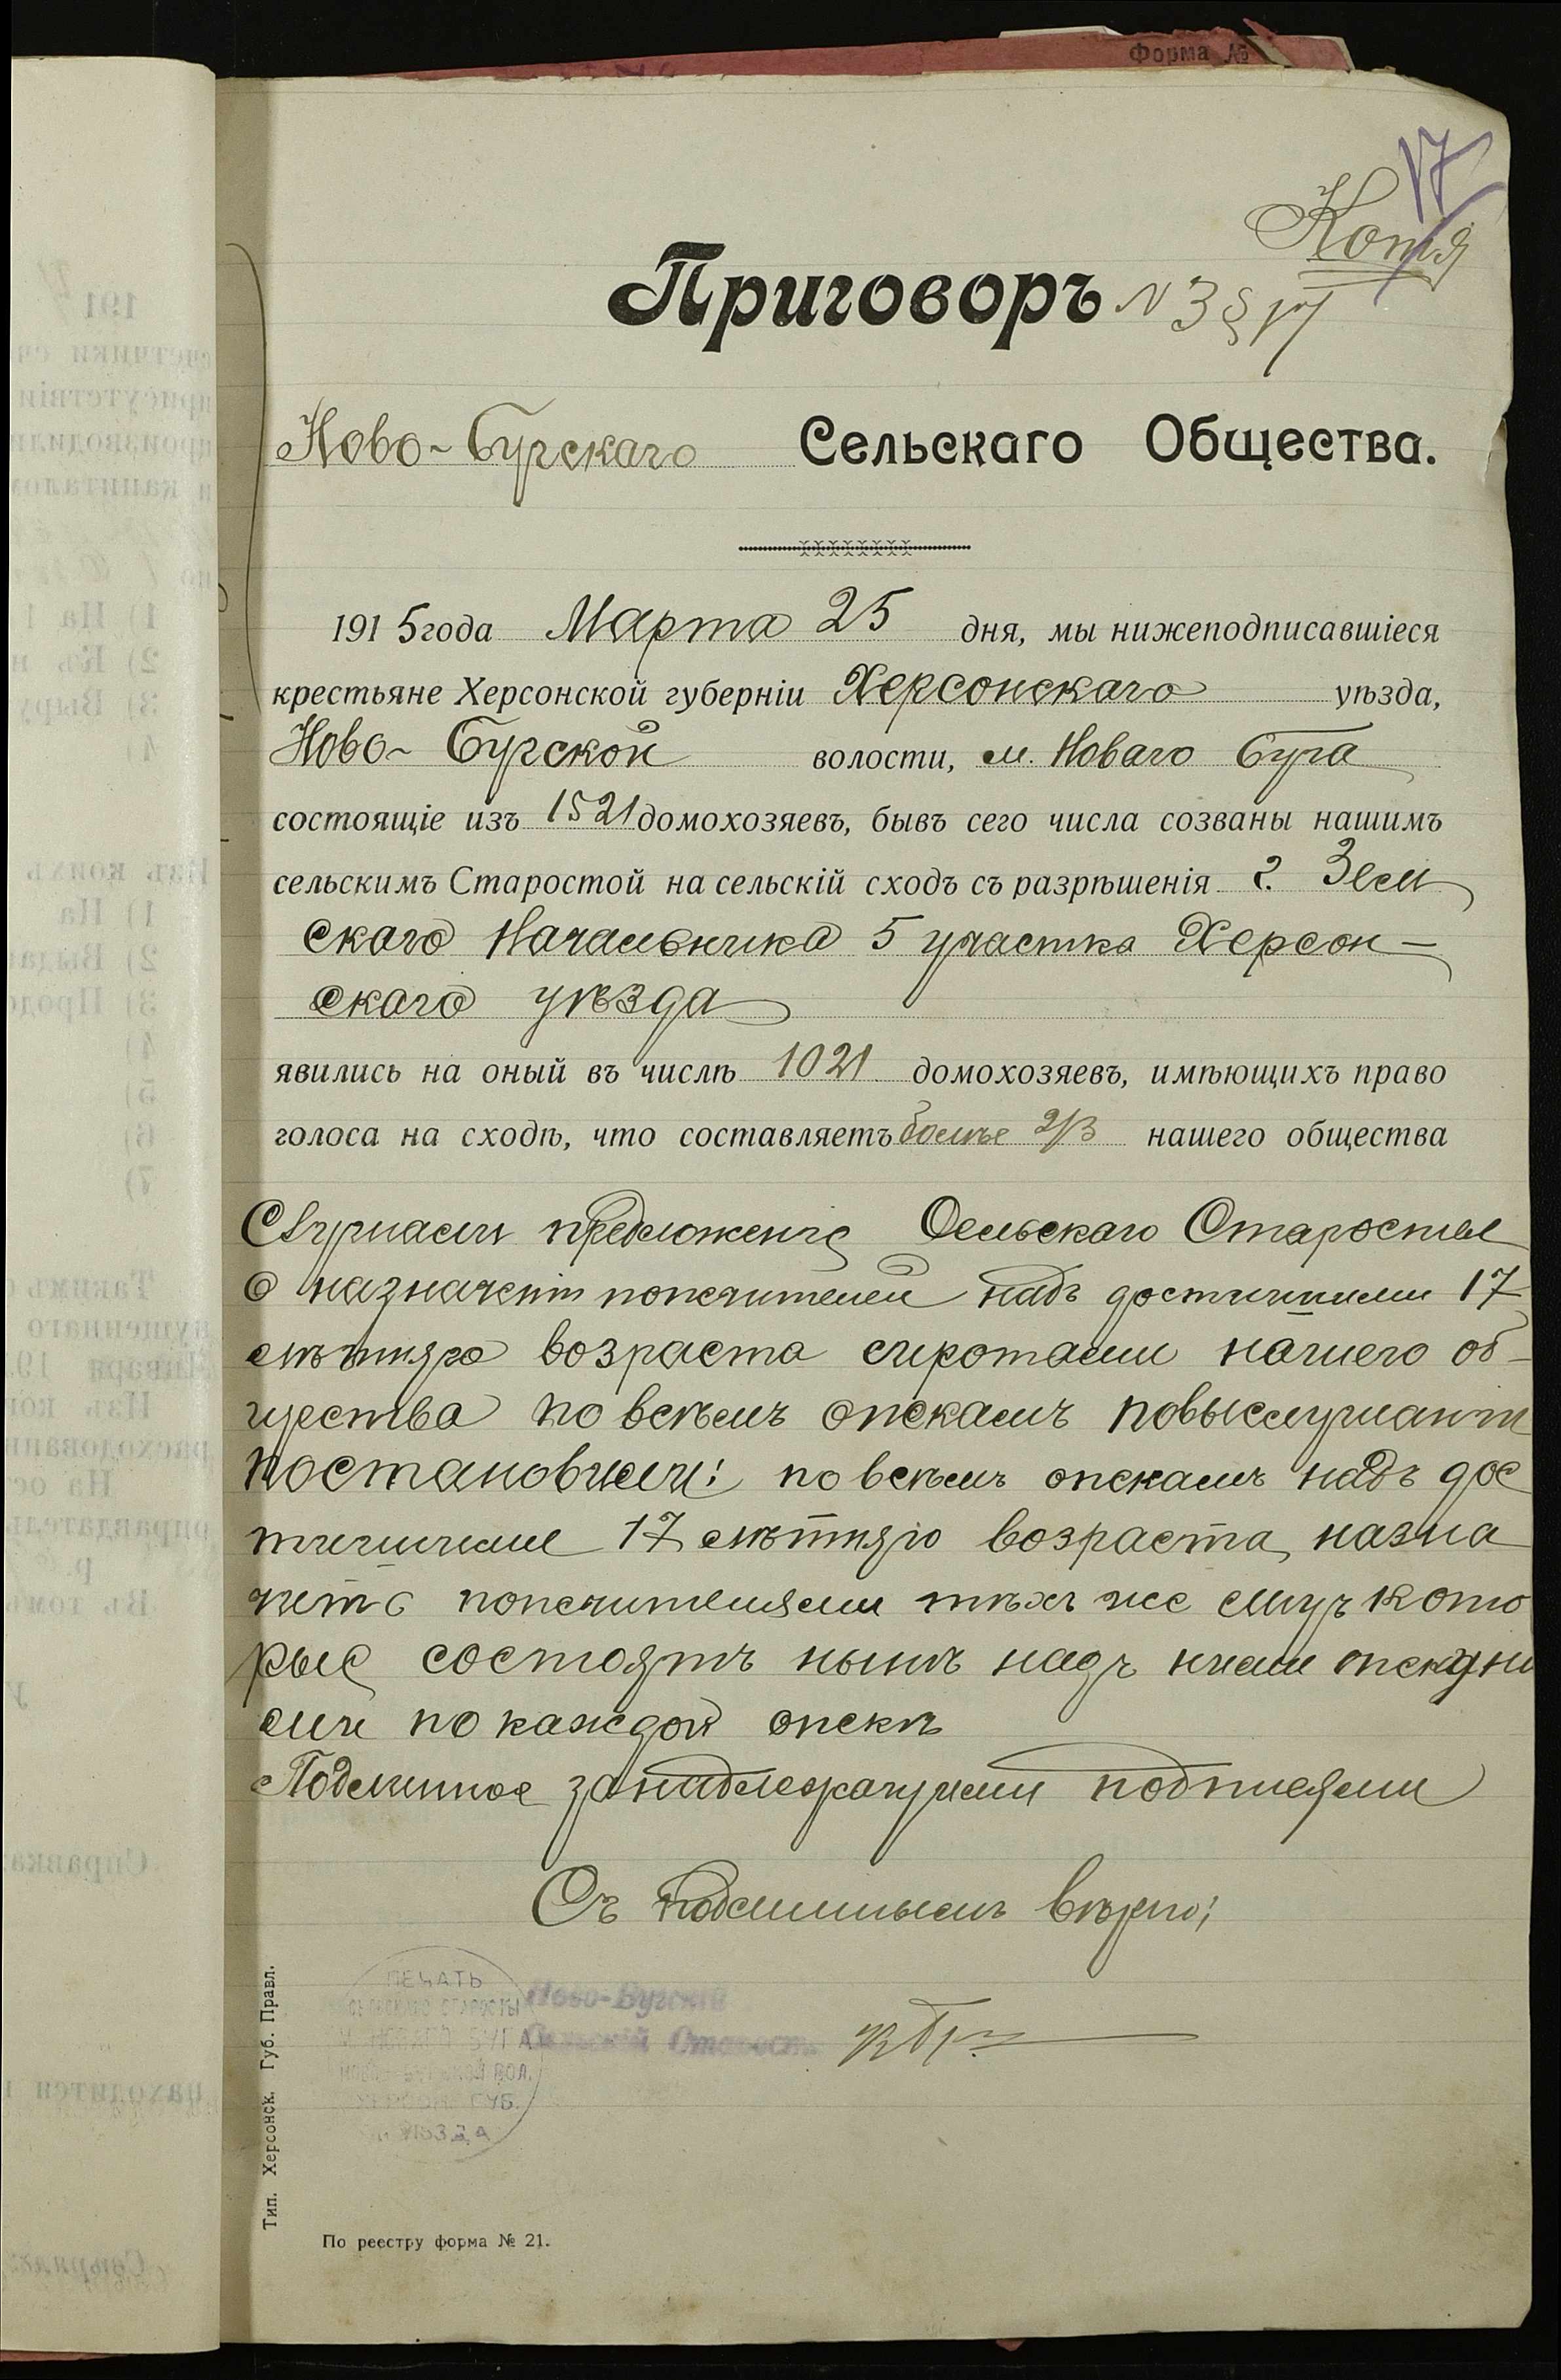 Форма №
17
Копія
Приговоръ N 3 § 17
Ново-Бугскаго Сельскаго Общества.
1915 года Марта 25 дня, мы нижеподписавшіеся
крестьяне Херсонской губерніи Херсонскаго уѣзда,
Ново-Бугской волости, м. Новаго Буга
состоящіе изъ 1521 домохозяевъ, бывъ сего числа созваны нашимъ
сельскимъ Старостой на сельскій сходъ съ разрѣшенія г. Зем
скаго Начальника 5 участка Херсон-
скаго уѣзда
явились на оный въ числѣ 1021 домохозяевъ, имѣющихъ право
голоса на сходѣ, что составляетъ болѣе 2/3 нашего общества
Слушали предложеніе Сельскаго Старосты
о назначеніи попечителей надъ достигшими 17
лѣтняго возраста сиротами нашего об-
щества по всѣмъ опекамъ повыслушаніи
постановили: по всѣмъ опекамъ надъ дос
тигшими 17 лѣтняго возраста, назна
чить попечителями тѣхъ же лицъ кото
рые состоятъ нынѣ надъ ними опекуна
ми по каждой опекѣ
Подлинное за надлежащими подписями
Съ подлиннымъ вѣрно:
ПЕЧАТЬ
СЕЛЬСКАГО СТАРОСТЫ
М. НОВАГО БУГА
НОВО-БУГСКОЙ ВОЛ.
ХЕРСОН. ГУБ.
УѢЗДА
Ново-Бугскій
Сельскій Староста
Тип. Херсонск. Губ. Правл.
По реестру форма № 21.